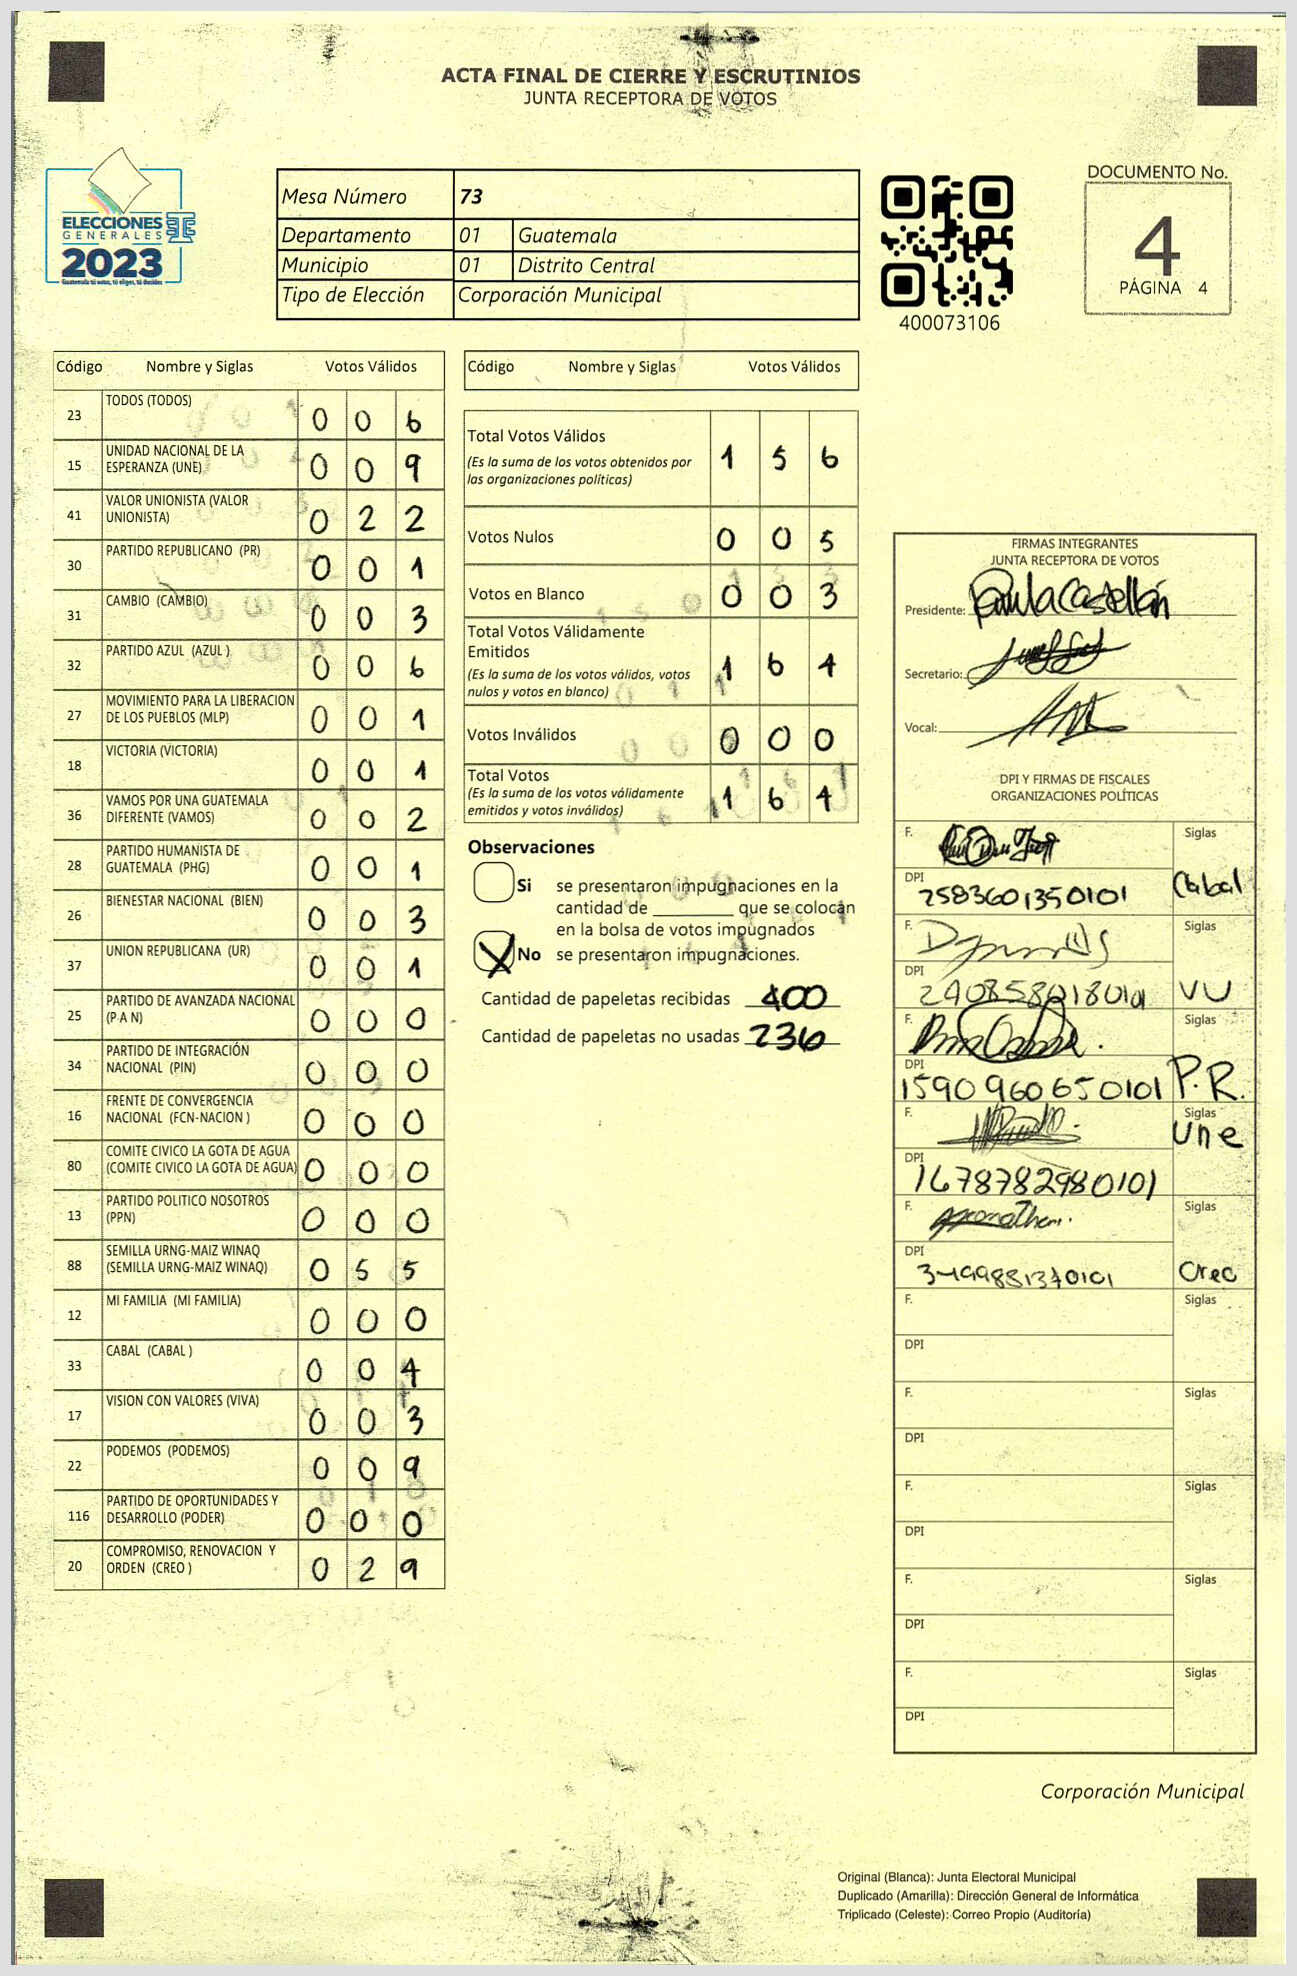 ACTA FINAL DE CIERRE Y ESCRUTINIOS
JUNTA RECEPTORA DE VOTOS
ELECCIONES
GENERALES
2023
Mesa Número 73
Departamento 01 Guatemala
Municipio 01 Distrito Central
Tipo de Elección Corporación Municipal
400073106
DOCUMENTO No.
4
PÁGINA 4
Código Nombre y Siglas Votos Válidos
23 TODOS (TODOS) 0 0 6
15 UNIDAD NACIONAL DE LA
ESPERANZA (UNE) 0 0 9
41 VALOR UNIONISTA (VALOR
UNIONISTA) 0 2 2
30 PARTIDO REPUBLICANO (PR) 0 0 1
31 CAMBIO (CAMBIO) 0 0 3
32 PARTIDO AZUL (AZUL ) 0 0 6
27 MOVIMIENTO PARA LA LIBERACION
DE LOS PUEBLOS (MLP) 0 0 1
18 VICTORIA (VICTORIA) 0 0 1
36 VAMOS POR UNA GUATEMALA
DIFERENTE (VAMOS) 0 0 2
28 PARTIDO HUMANISTA DE
GUATEMALA (PHG) 0 0 1
26 BIENESTAR NACIONAL (BIEN) 0 0 3
37 UNION REPUBLICANA (UR) 0 0 1
25 PARTIDO DE AVANZADA NACIONAL
(P A N) 0 0 0
34 PARTIDO DE INTEGRACIÓN
NACIONAL (PIN) 0 0 0
16 FRENTE DE CONVERGENCIA
NACIONAL (FCN-NACION ) 0 0 0
80 COMITE CIVICO LA GOTA DE AGUA
(COMITE CIVICO LA GOTA DE AGUA) 0 0 0
13 PARTIDO POLITICO NOSOTROS
(PPN) 0 0 0
88 SEMILLA URNG-MAIZ WINAQ
(SEMILLA URNG-MAIZ WINAQ) 0 5 5
12 MI FAMILIA (MI FAMILIA) 0 0 0
33 CABAL (CABAL ) 0 0 4
17 VISION CON VALORES (VIVA) 0 0 3
22 PODEMOS (PODEMOS) 0 0 9
116 PARTIDO DE OPORTUNIDADES Y
DESARROLLO (PODER) 0 0 0
20 COMPROMISO, RENOVACION Y
ORDEN (CREO ) 0 2 9
Código Nombre y Siglas Votos Válidos
Total Votos Válidos 1 5 6
(Es la suma de los votos obtenidos por
las organizaciones políticas)
Votos Nulos 0 0 5
Votos en Blanco 0 0 3
Total Votos Válidamente
Emitidos 1 6 4
(Es la suma de los votos válidos, votos
nulos y votos en blanco)
Votos Inválidos 0 0 0
Total Votos 1 6 4
(Es la suma de los votos válidamente
emitidos y votos inválidos)
Observaciones
Si se presentaron impugnaciones en la
cantidad de ________ que se colocan
en la bolsa de votos impugnados
X No se presentaron impugnaciones.
Cantidad de papeletas recibidas 400
Cantidad de papeletas no usadas 236
FIRMAS INTEGRANTES
JUNTA RECEPTORA DE VOTOS
Presidente: Paula Castellán
Secretario:
Vocal:
DPI Y FIRMAS DE FISCALES
ORGANIZACIONES POLÍTICAS
F. Siglas
DPI 2583601350101 Cabal
F. Siglas
DPI VU
F. Siglas
DPI 1590960650101 P.R.
F. Siglas
Une
DPI 1678782980101
F. Siglas
DPI Creo
F. Siglas
DPI
F. Siglas
DPI
F. Siglas
DPI
F. Siglas
DPI
F. Siglas
DPI
Corporación Municipal
Original (Blanca): Junta Electoral Municipal
Duplicado (Amarilla): Dirección General de Informática
Triplicado (Celeste): Correo Propio (Auditoría)